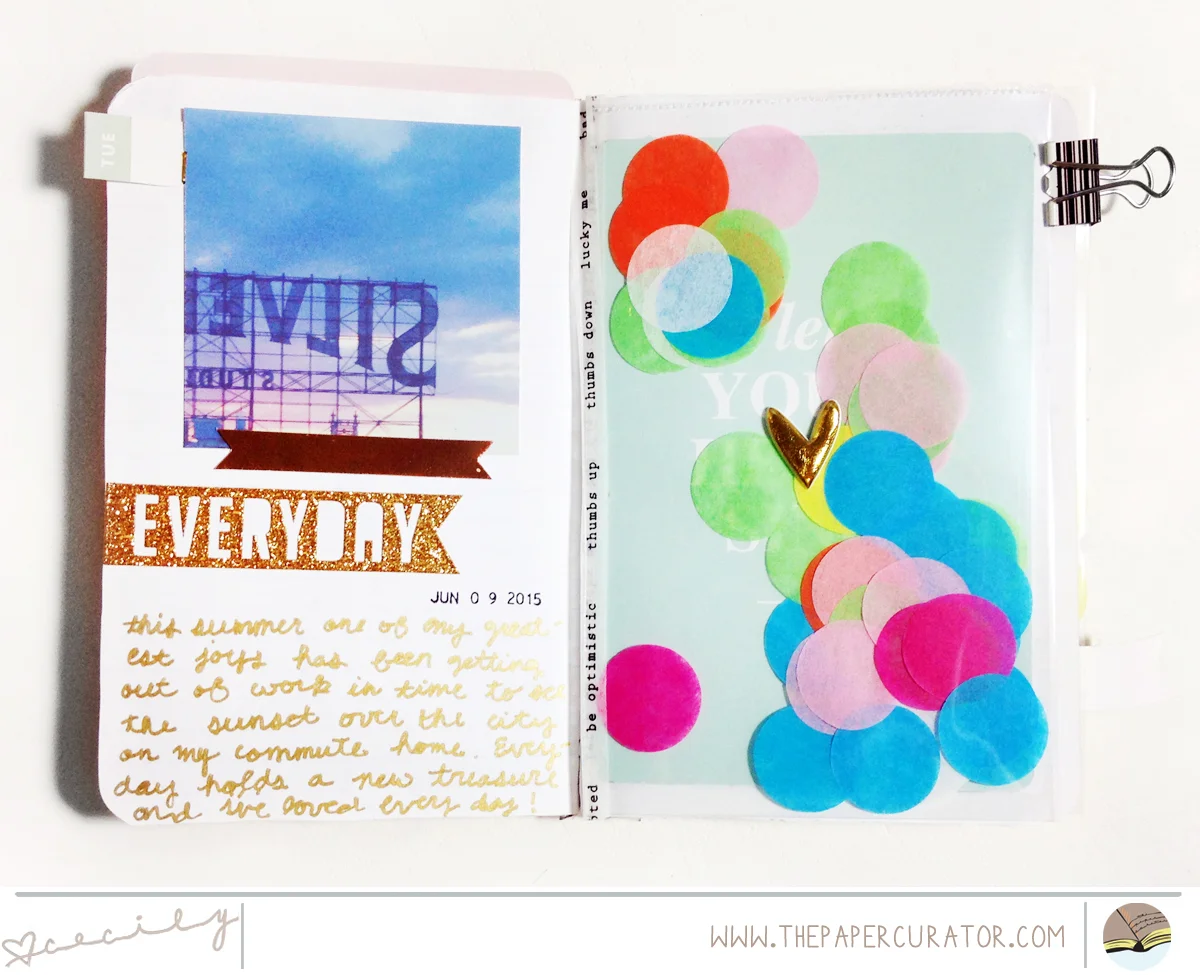 TUE
SILVE
STUDI
EVERYDAY
JUN 0 9 2015
this summer one of my great-
est joys has been getting
out of work in time to see
the sunset over the city
on my commute home. Every-
day holds a new treasure
and i've loved every day!
be optimistic thumbs up thumbs down lucky me bad
le
YOU
cecily
WWW.THEPAPERCURATOR.COM